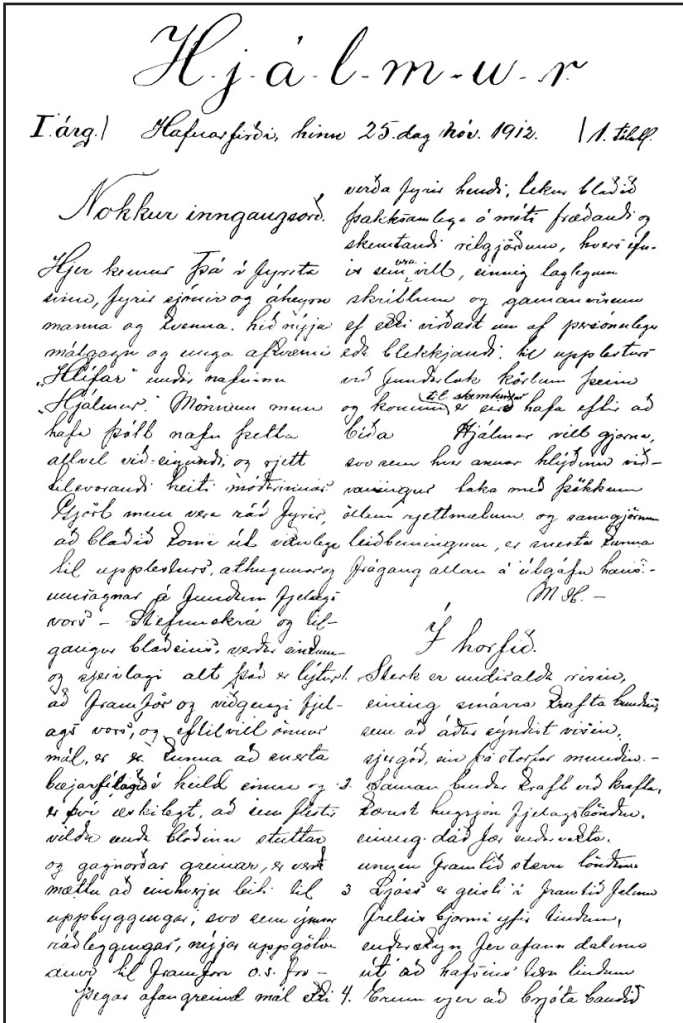 H-j-á-l-m-u-r
I. árg. | Hafnarfirði, hinn 25. dag nóv. 1912. | 1. tölubl.
Nokkur inngangsorð.
Hjer kemur þá í fyrsta
sinn, fyrir sjónir og áheyrn
manna og kvenna, hið nýja
málgagn og unga afkvæmi
„Hlífar" undir nafninu
„Hjálmur". Mönnum mun
hafa þótt nafn þetta
allvel við-eigandi, og rjett
tilsvarandi heiti móðurinnar.
Gjört mun vera ráð fyrir,
að blaðið komi út vikulega
til upplesturs, athugunar og
umsagnar á fundum fjelags
vors - Stefnuskrá og til-
gangur blaðsins, verður einkum
og sjerílagi alt það er lýtur
að framför og viðgangi fjel-
ags vors, og eftilvill önnur
mál, er kunna að snerta
bæjarfélagið í heild sinni og
er því æskilegt, að sem flestir
vildu senda blaðinu stuttar
og gagnorðar greinar, er verða
mættu að einhverju leiti til
uppbyggingar, svo sem ýmsar
ráðleggingar, nýjar uppgötv-
anir til framfara o.s.frv -
Þegar ofangreind mál ekki
verða fyrir hendi, tekur blaðið
þakksamlega á móti fræðandi og
skemtandi ritgjörðum, hvers efn-
is sem vera vill, einnig laglegum
skrítlum og gamanvísum
ef ekki virðast um of persónulegar
eða blekkjandi: til upplesturs
við fundarlok körlum þeim
og konum til skemtunar er hafa eftir að
bíða Hjálmar vill gjarna,
svo sem hver annar hlýðinn við-
vaningur taka með þökkum
öllum rjettmætum og sanngjörnum
leiðbeiningum, er snerta kunna
frágang allan á útgáfu hans. -
M H. -
Í horfið.
1. Sterk er undiraldan risin,
eining smárra krafta bundin,
sem að áður sýndist visin,
sjergóð, ein þá stopar mundin. -
2. Saman bundin kraft við krafta,
Kærust hugsjón fjelagsböndin,
eining dáð fær
ungum framtíð stærri löndin
3 Ljóss er geisli í framtíð falinn
frelsis bjarmi yfir tindum,
endurskyn fer ofan dalinn
út að hafsins tæru lindum
4. Erum vjer að brjóta bandið